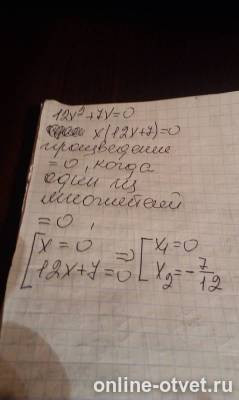 12x²+7x=0
x(12x+7)=0
произведение
=0, когда
один из
множителей
=0,
[x=0 => [x₁=0
[12x+7=0 [x₂=-7/12
online-otvet.ru